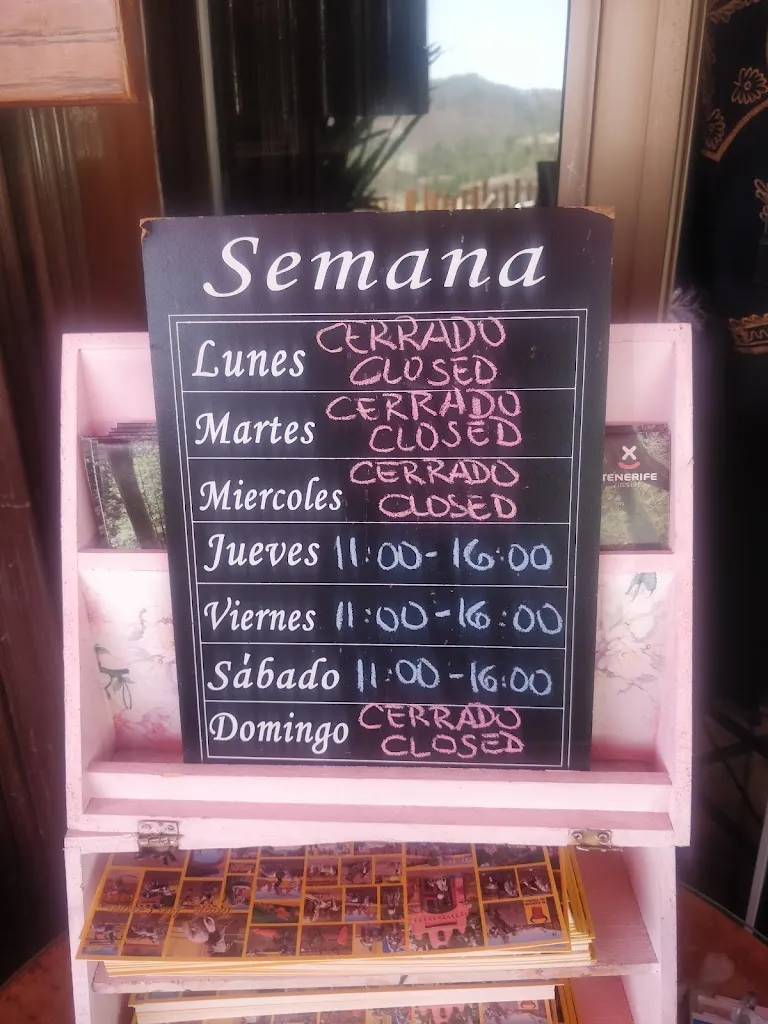 Semana
Lunes CERRADO
CLOSED
Martes CERRADO
CLOSED
Miercoles CERRADO
CLOSED
Jueves 11:00-16:00
Viernes 11:00-16:00
Sábado 11:00-16:00
Domingo CERRADO
CLOSED
TENERIFE